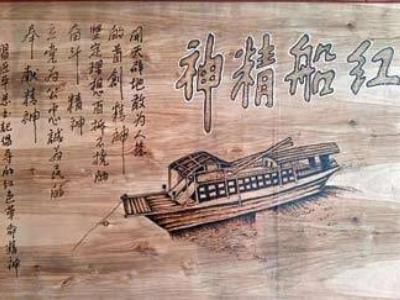 红船精神
開天辟地敢为人先
的首创精神
坚定理想百折不挠的
奋斗精神
立党为公忠诚为民的
奉献精神
習近平总书记倡导的红色革命精神